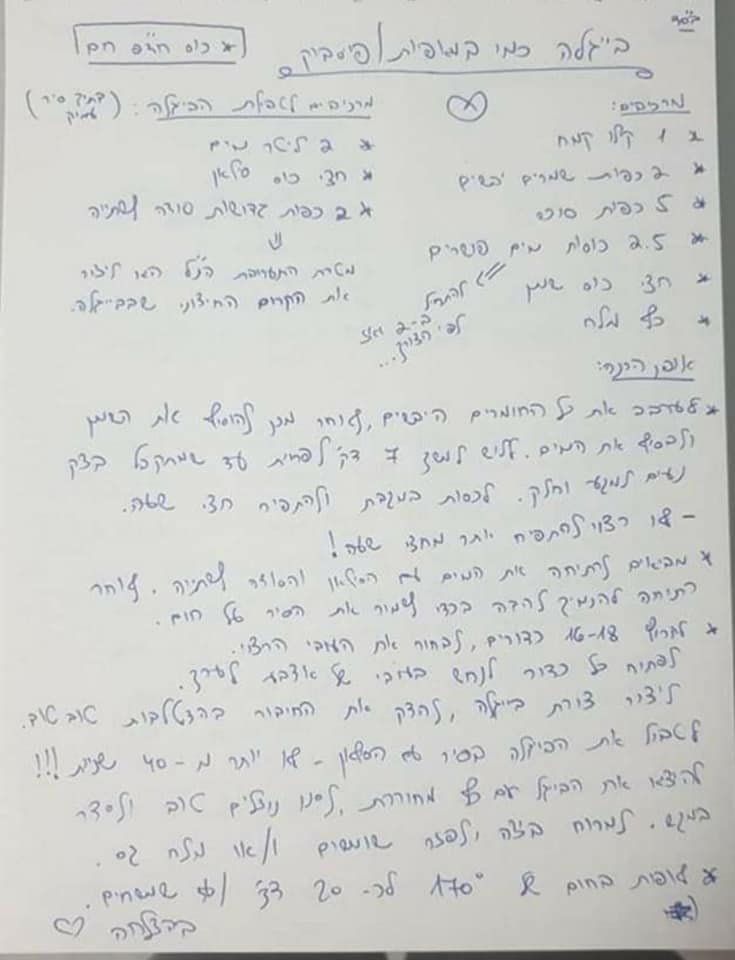 בס"ד
בייגלה כמו במגופות/פיסביק
* כוס חד"פ חם
מרכיבים:
* 1 קילו קמח
* 2 כפות שמרים יבשים
* 5 כפות סוכר
* 2.5 כוסות מים פושרים
להתחיל ב-2 ואז לפי הצורך...
* חצי כוס שמן
* כף מלח
מרכיבים לטבילת הביגלה: (בתוך סיר עמוק)
* 2 ליטר מים
* חצי כוס סילאן
* 2 כפות גדושות סודה לשתייה
מטרת התערובת הנ"ל הוא ליצור
את הקרום החיצוני שבבייגלה.
אופן הכנה:
* לערבב את כל החומרים היבשים, לאחר מכן להוסיף את השמן
ולבסוף את המים. ללוש למשך 7 דק' לפחות עד שמתקבל בצק
נעים למגע וחלק. לכסות במגבת ולהתפיח חצי שעה.
- לא רצוי להתפיח יותר מחצי שעה!
* מביאים לרתיחה את המים עם הסילאן והסודה לשתייה. לאחר
רתיחה להנמיך להבה בכדי לשמור את הסיר על חום.
* לקרוץ 16-18 כדורים, לבחור את העובי הרצוי.
לפתוח כל כדור לנחש בעובי של אצבע לערך.
ליצור צורת בייגלה, להדק את החיבור בהצטלבות טוב טוב.
לטבול את הביגלה בסיר עם הסילאן - לא יותר מ-40 שניות!!!
להוציא את הביגל עם כף מחוררת, לסנן נוזלים טוב ולסדר
במגש. למרוח ביצה ולפזר שומשום ו/או מלח גס.
* לאפות בחום של 170° לכ-20 דק' /עד שמשחים.
בהצלחה